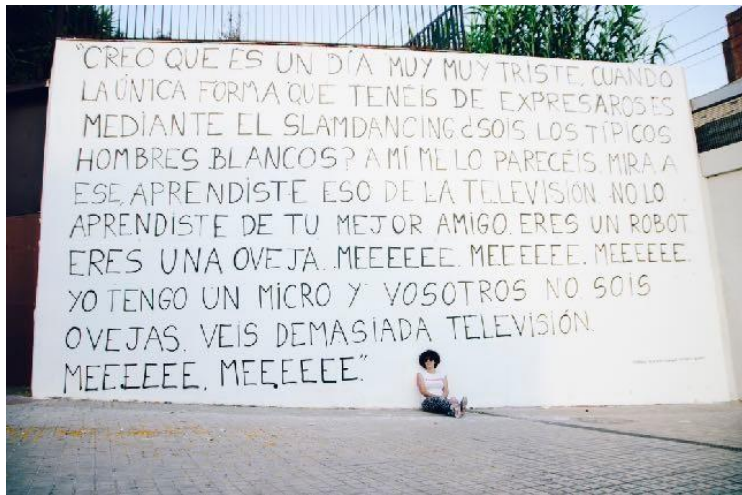 "CREO QUE ES UN DÍA MUY MUY TRISTE, CUANDO
LA ÚNICA FORMA QUE TENÉIS DE EXPRESAROS ES
MEDIANTE EL SLAMDANCING ¿SOIS LOS TÍPICOS
HOMBRES BLANCOS? A MÍ ME LO PARECÉIS. MIRA A
ESE, APRENDISTE ESO DE LA TELEVISIÓN. NO LO
APRENDISTE DE TU MEJOR AMIGO. ERES UN ROBOT.
ERES UNA OVEJA. MEEEEEE. MEEEEEE. MEEEEEE.
YO TENGO UN MICRO Y VOSOTROS NO. SOIS
OVEJAS. VEIS DEMASIADA TELEVISIÓN.
MEEEEEE. MEEEEEE."